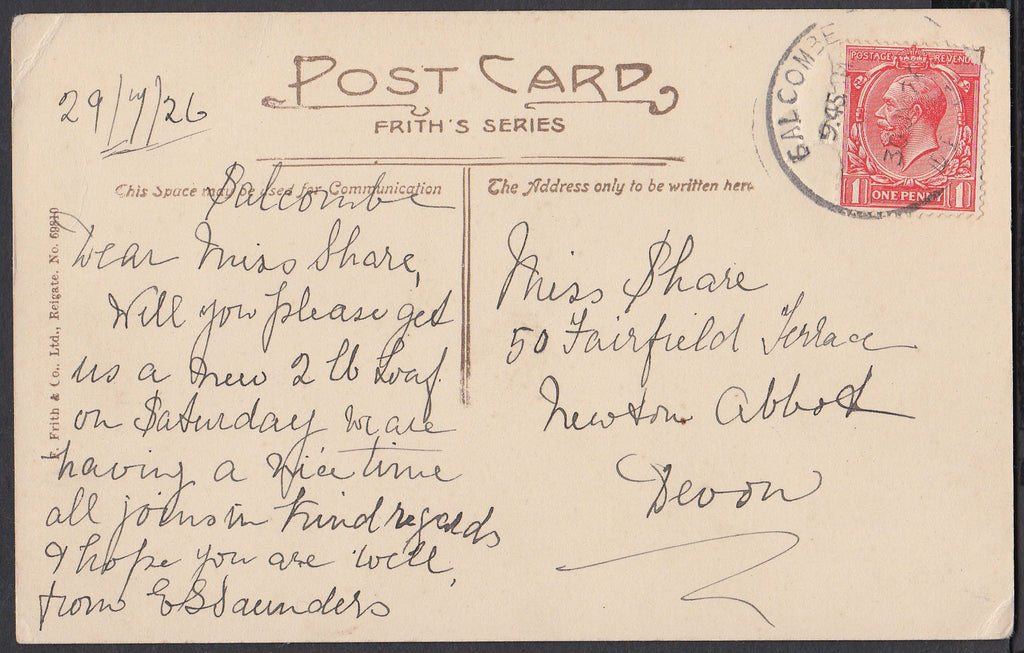 POST CARD
FRITH'S SERIES
29/7/26
This Space may be used for Communication
The Address only to be written here
Balcombe
Dear Miss Share,
Will you please get
us a new 2 lb Loaf
on Saturday we are
having a nice time
all joins in kind regards
& hope you are well
from E G Saunders
Miss Share
50 Fairfield Terrace
Newton Abbot
Devon
F. Frith & Co., Ltd., Reigate. No. 69810
BALCOMBE
POSTAGE REVENUE
1 ONE PENNY 1